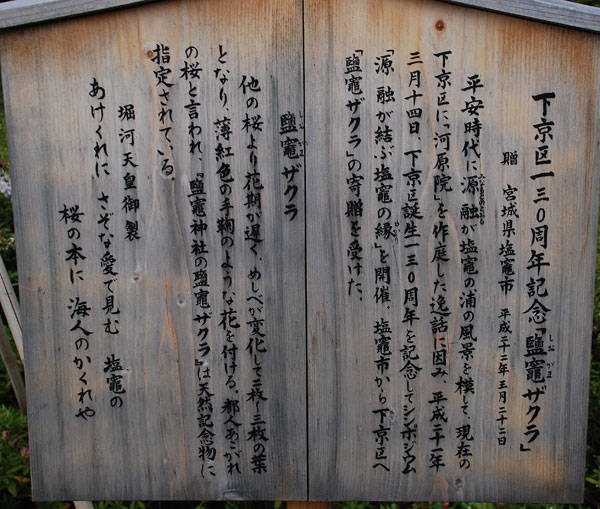 下京区一三〇周年記念「鹽竈ザクラ」
しおがま
贈 宮城県塩竈市 平成二十二年三月二十二日
平安時代に源融が塩竈の浦の風景を模して、現在の
下京区に、「河原院」を作庭した逸話に因み、平成二十一年
三月十四日、下京区誕生一三〇周年を記念してシンポジウム
「源 融が結ぶ塩竈の縁」を開催。塩竈市から下京区へ
「鹽竈ザクラ」の寄贈を受けた。
鹽竈ザクラ
しおがま
他の桜より花期が遅く、めしべが変化して二枚〜三枚の葉
となり、薄紅色の手鞠のような花を付ける。都人あこがれ
の桜と言われ、『鹽竈神社の鹽竈ザクラ』は天然記念物に
指定されている。
堀河天皇御製
あけくれに さぞな愛で見む 塩竈の
桜の本に 海人のかくれや